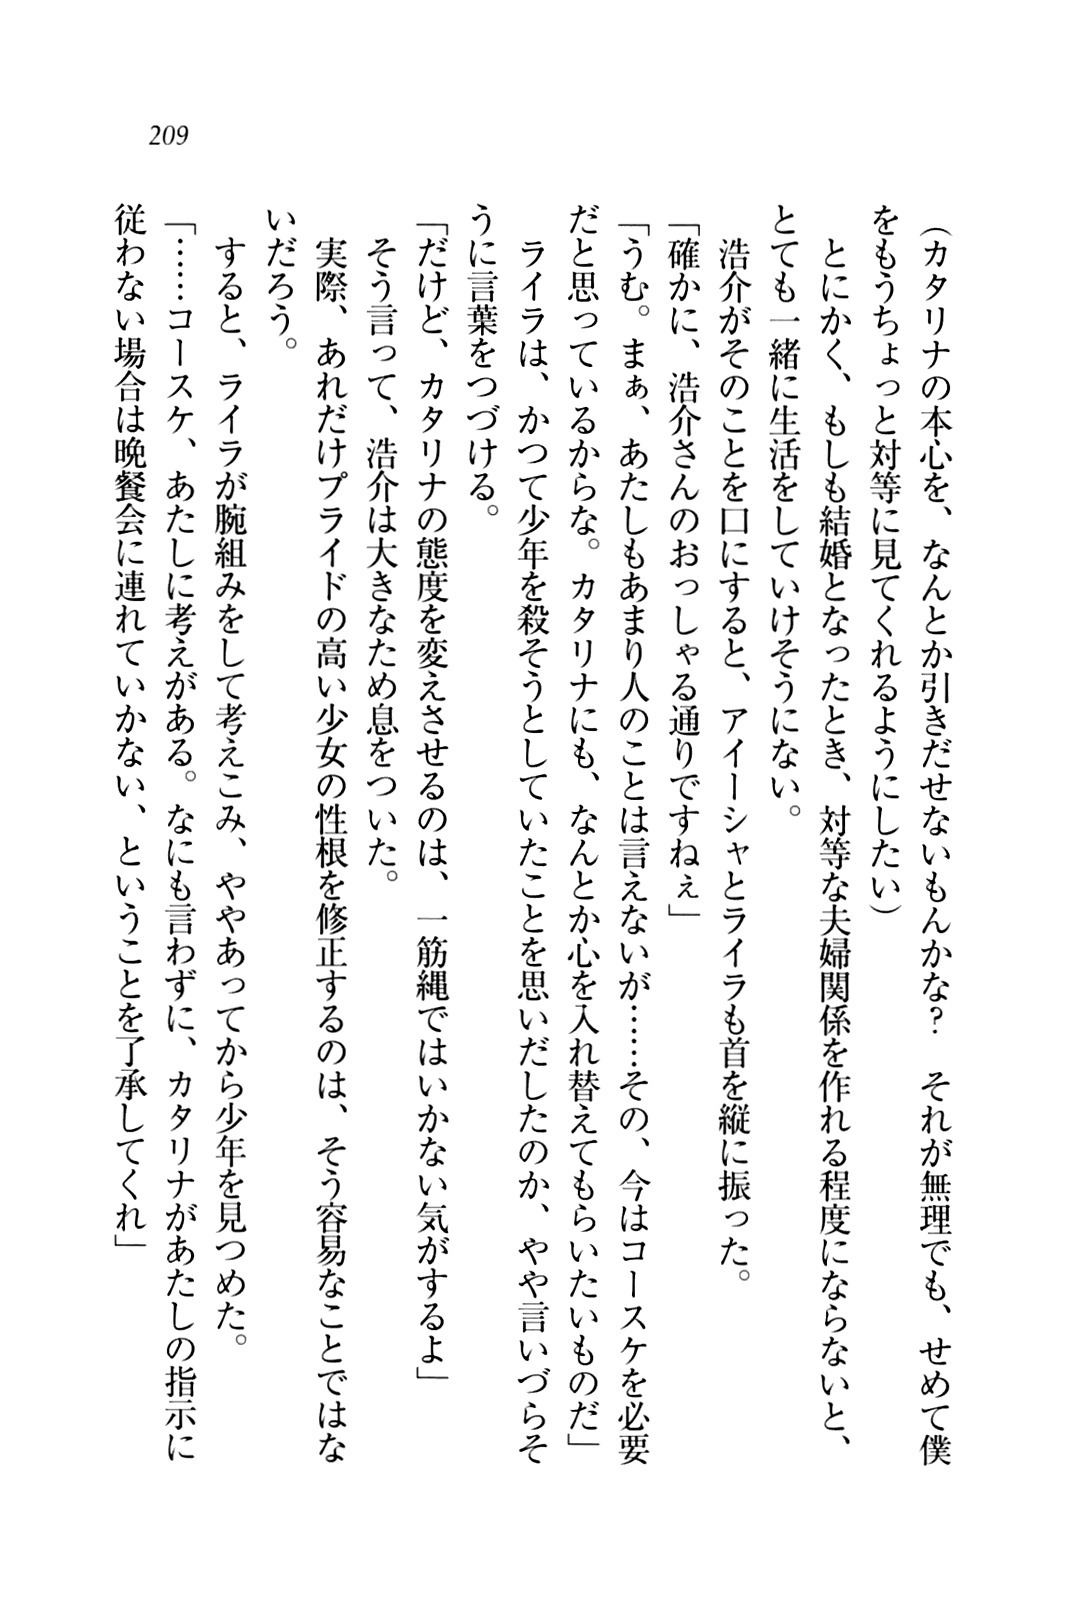 209
（カタリナの本心を、なんとか引きだせないもんかな？　それが無理でも、せめて僕
をもうちょっと対等に見てくれるようにしたい）
　とにかく、もしも結婚となったとき、対等な夫婦関係を作れる程度にならないと、
とても一緒に生活をしていけそうにない。
　浩介がそのことを口にすると、アイーシャとライラも首を縦に振った。
「確かに、浩介さんのおっしゃる通りですねぇ」
「うむ。まぁ、あたしもあまり人のことは言えないが……その、今はコースケを必要
だと思っているからな。カタリナにも、なんとか心を入れ替えてもらいたいものだ」
　ライラは、かつて少年を殺そうとしていたことを思いだしたのか、やや言いづらそ
うに言葉をつづける。
「だけど、カタリナの態度を変えさせるのは、一筋縄ではいかない気がするよ」
　そう言って、浩介は大きなため息をついた。
　実際、あれだけプライドの高い少女の性根を修正するのは、そう容易なことではな
いだろう。
　すると、ライラが腕組みをして考えこみ、ややあってから少年を見つめた。
「……コースケ、あたしに考えがある。なにも言わずに、カタリナがあたしの指示に
従わない場合は晩餐会に連れていかない、ということを了承してくれ」